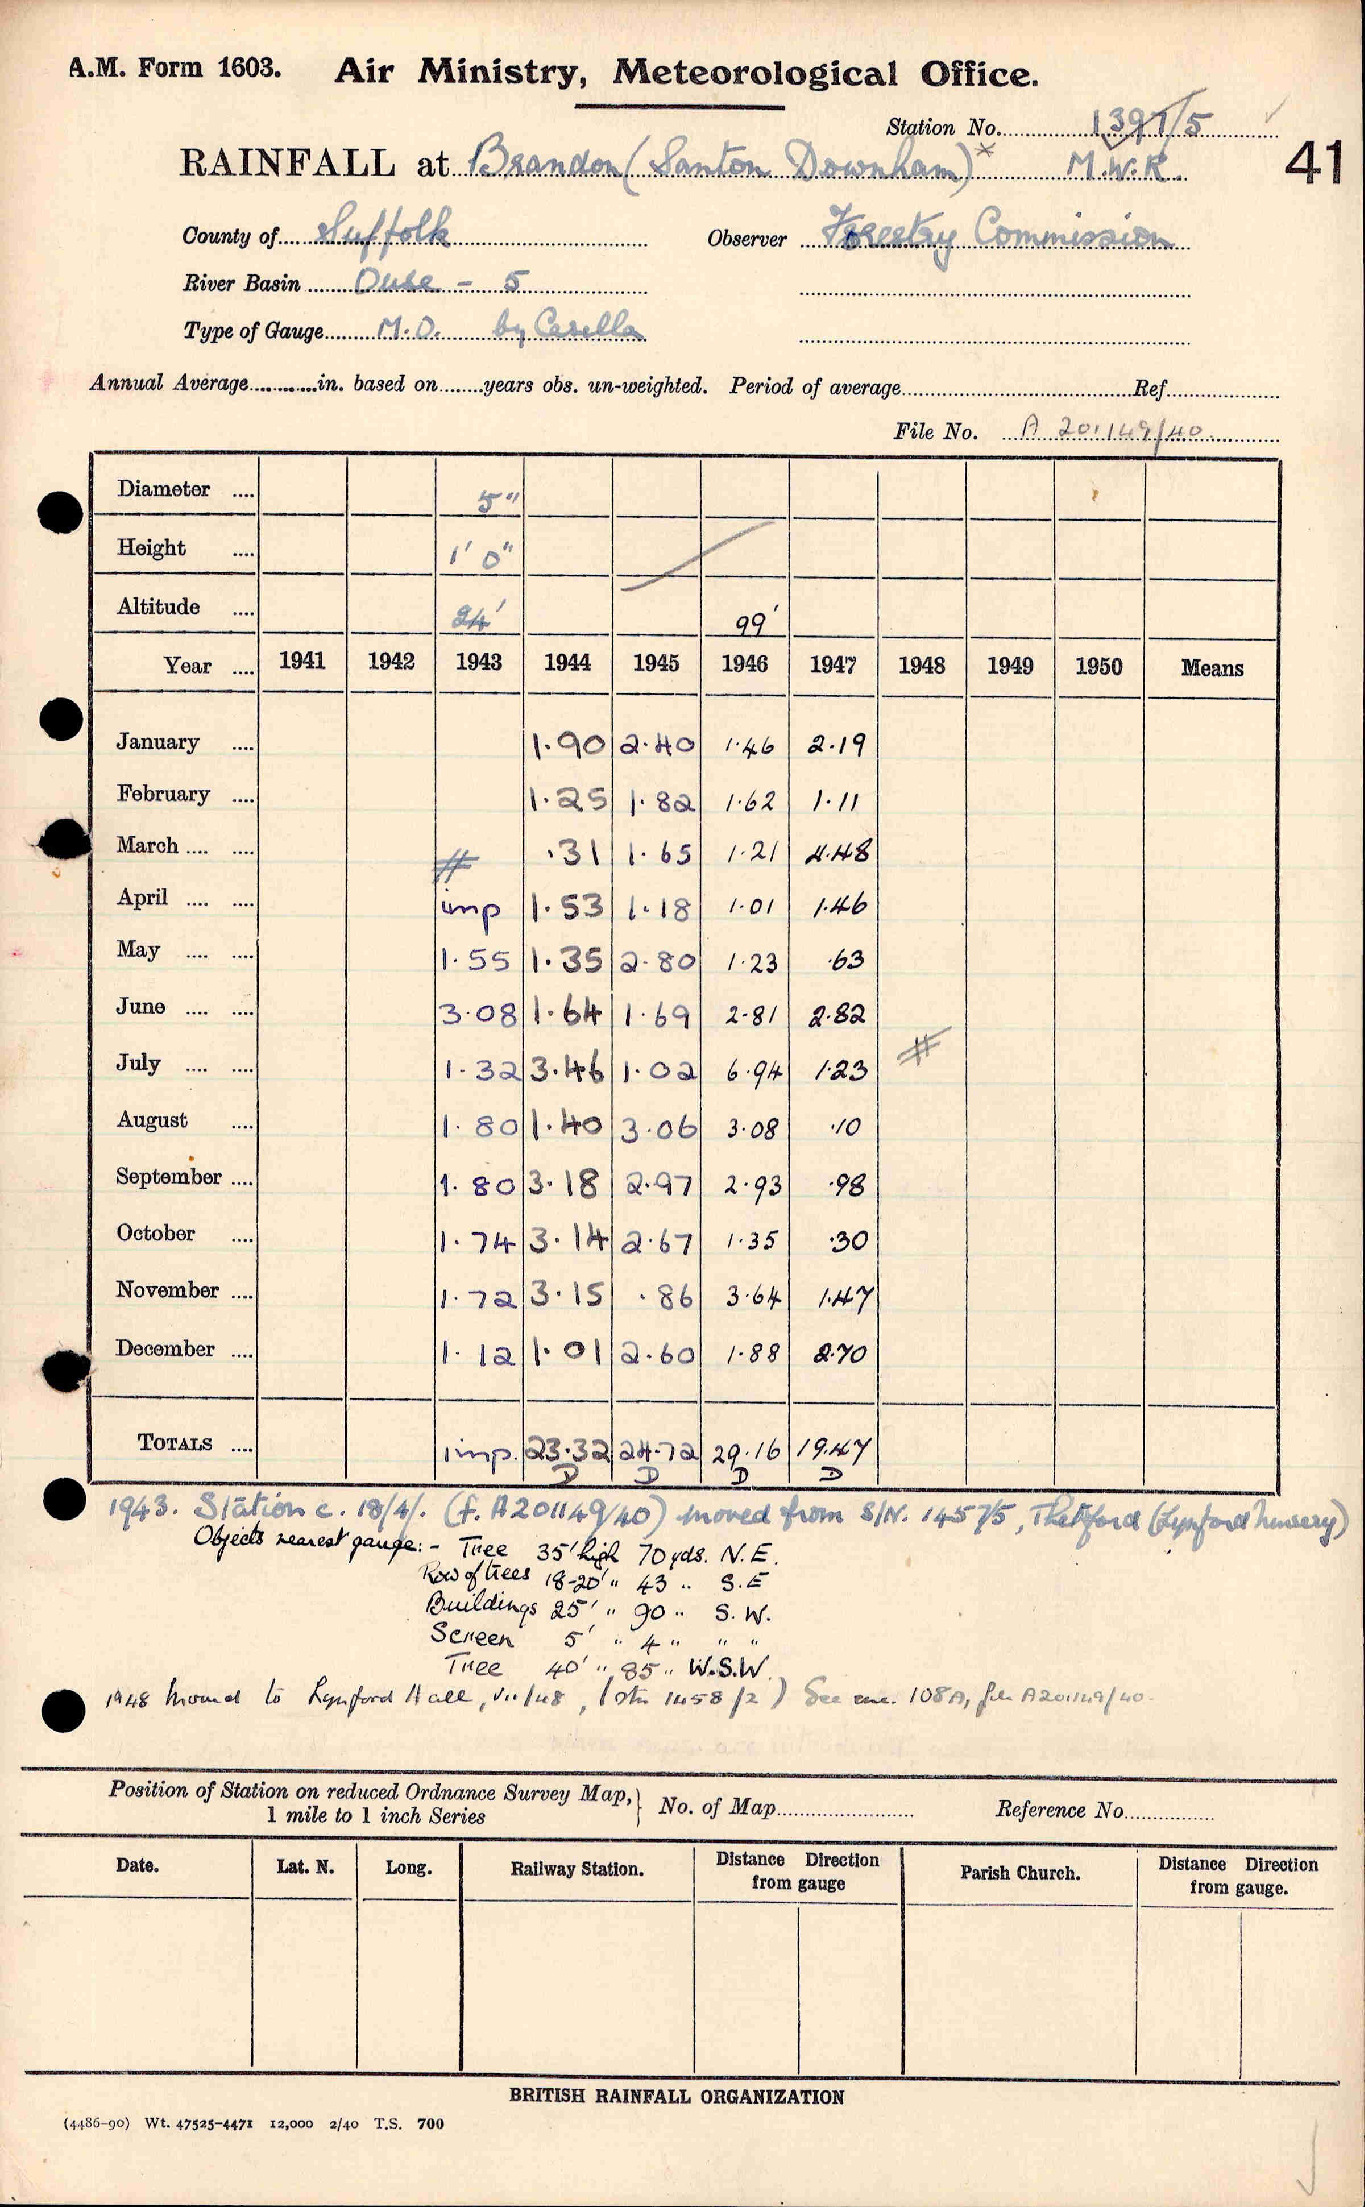 A.M. Form 1603. Air Ministry, Meteorological Office.
Station No. 1397/5
RAINFALL at Brandon (Santon Downham)* M.W.R. 41
County of Suffolk Observer Forestry Commission
River Basin Ouse - 5
Type of Gauge M.O. by Casella
Annual Average in. based on years obs. un-weighted. Period of average Ref.
File No. A 201149/40
Diameter .... 5"
Height .... 1' 0"
Altitude .... 24' 99'
Year .... 1941 1942 1943 1944 1945 1946 1947 1948 1949 1950 Means
January .... 1.90 2.40 1.46 2.19
February .... 1.25 1.82 1.62 1.11
March .... .... # .31 1.65 1.21 4.48
April .... .... imp 1.53 1.18 1.01 1.46
May .... .... 1.55 1.35 2.80 1.23 .63
June .... .... 3.08 1.64 1.69 2.81 2.82
July .... .... 1.32 3.46 1.02 6.94 1.23 #
August .... 1.80 1.40 3.06 3.08 .10
September .... 1.80 3.18 2.97 2.93 .98
October .... 1.74 3.14 2.67 1.35 .30
November .... 1.72 3.15 .86 3.64 1.47
December .... 1.12 1.01 2.60 1.88 2.70
TOTALS .... imp. 23.32 24.72 29.16 19.47
D D D D
1943. Station c. 18/4/. (f. A201149/40) moved from S/N. 1457/5, Thetford (Lynford Nursery)
Objects nearest gauge:- Tree 35' high 70 yds. N.E.
Row of trees 18-20' " 43 " S.E
Buildings 25' " 90 " S.W.
Screen 5' " 4 " " "
Tree 40' " 85 " W.S.W.
1948 Moved to Lynford Hall, vii/48, (stn 1458/2) See enc. 108A, file A201149/40.
Position of Station on reduced Ordnance Survey Map, } No. of Map Reference No.
1 mile to 1 inch Series
Date. Lat. N. Long. Railway Station. Distance Direction from gauge Parish Church. Distance Direction from gauge.
BRITISH RAINFALL ORGANIZATION
(4486-90) Wt. 47525-4471 12,000 2/40 T.S. 700